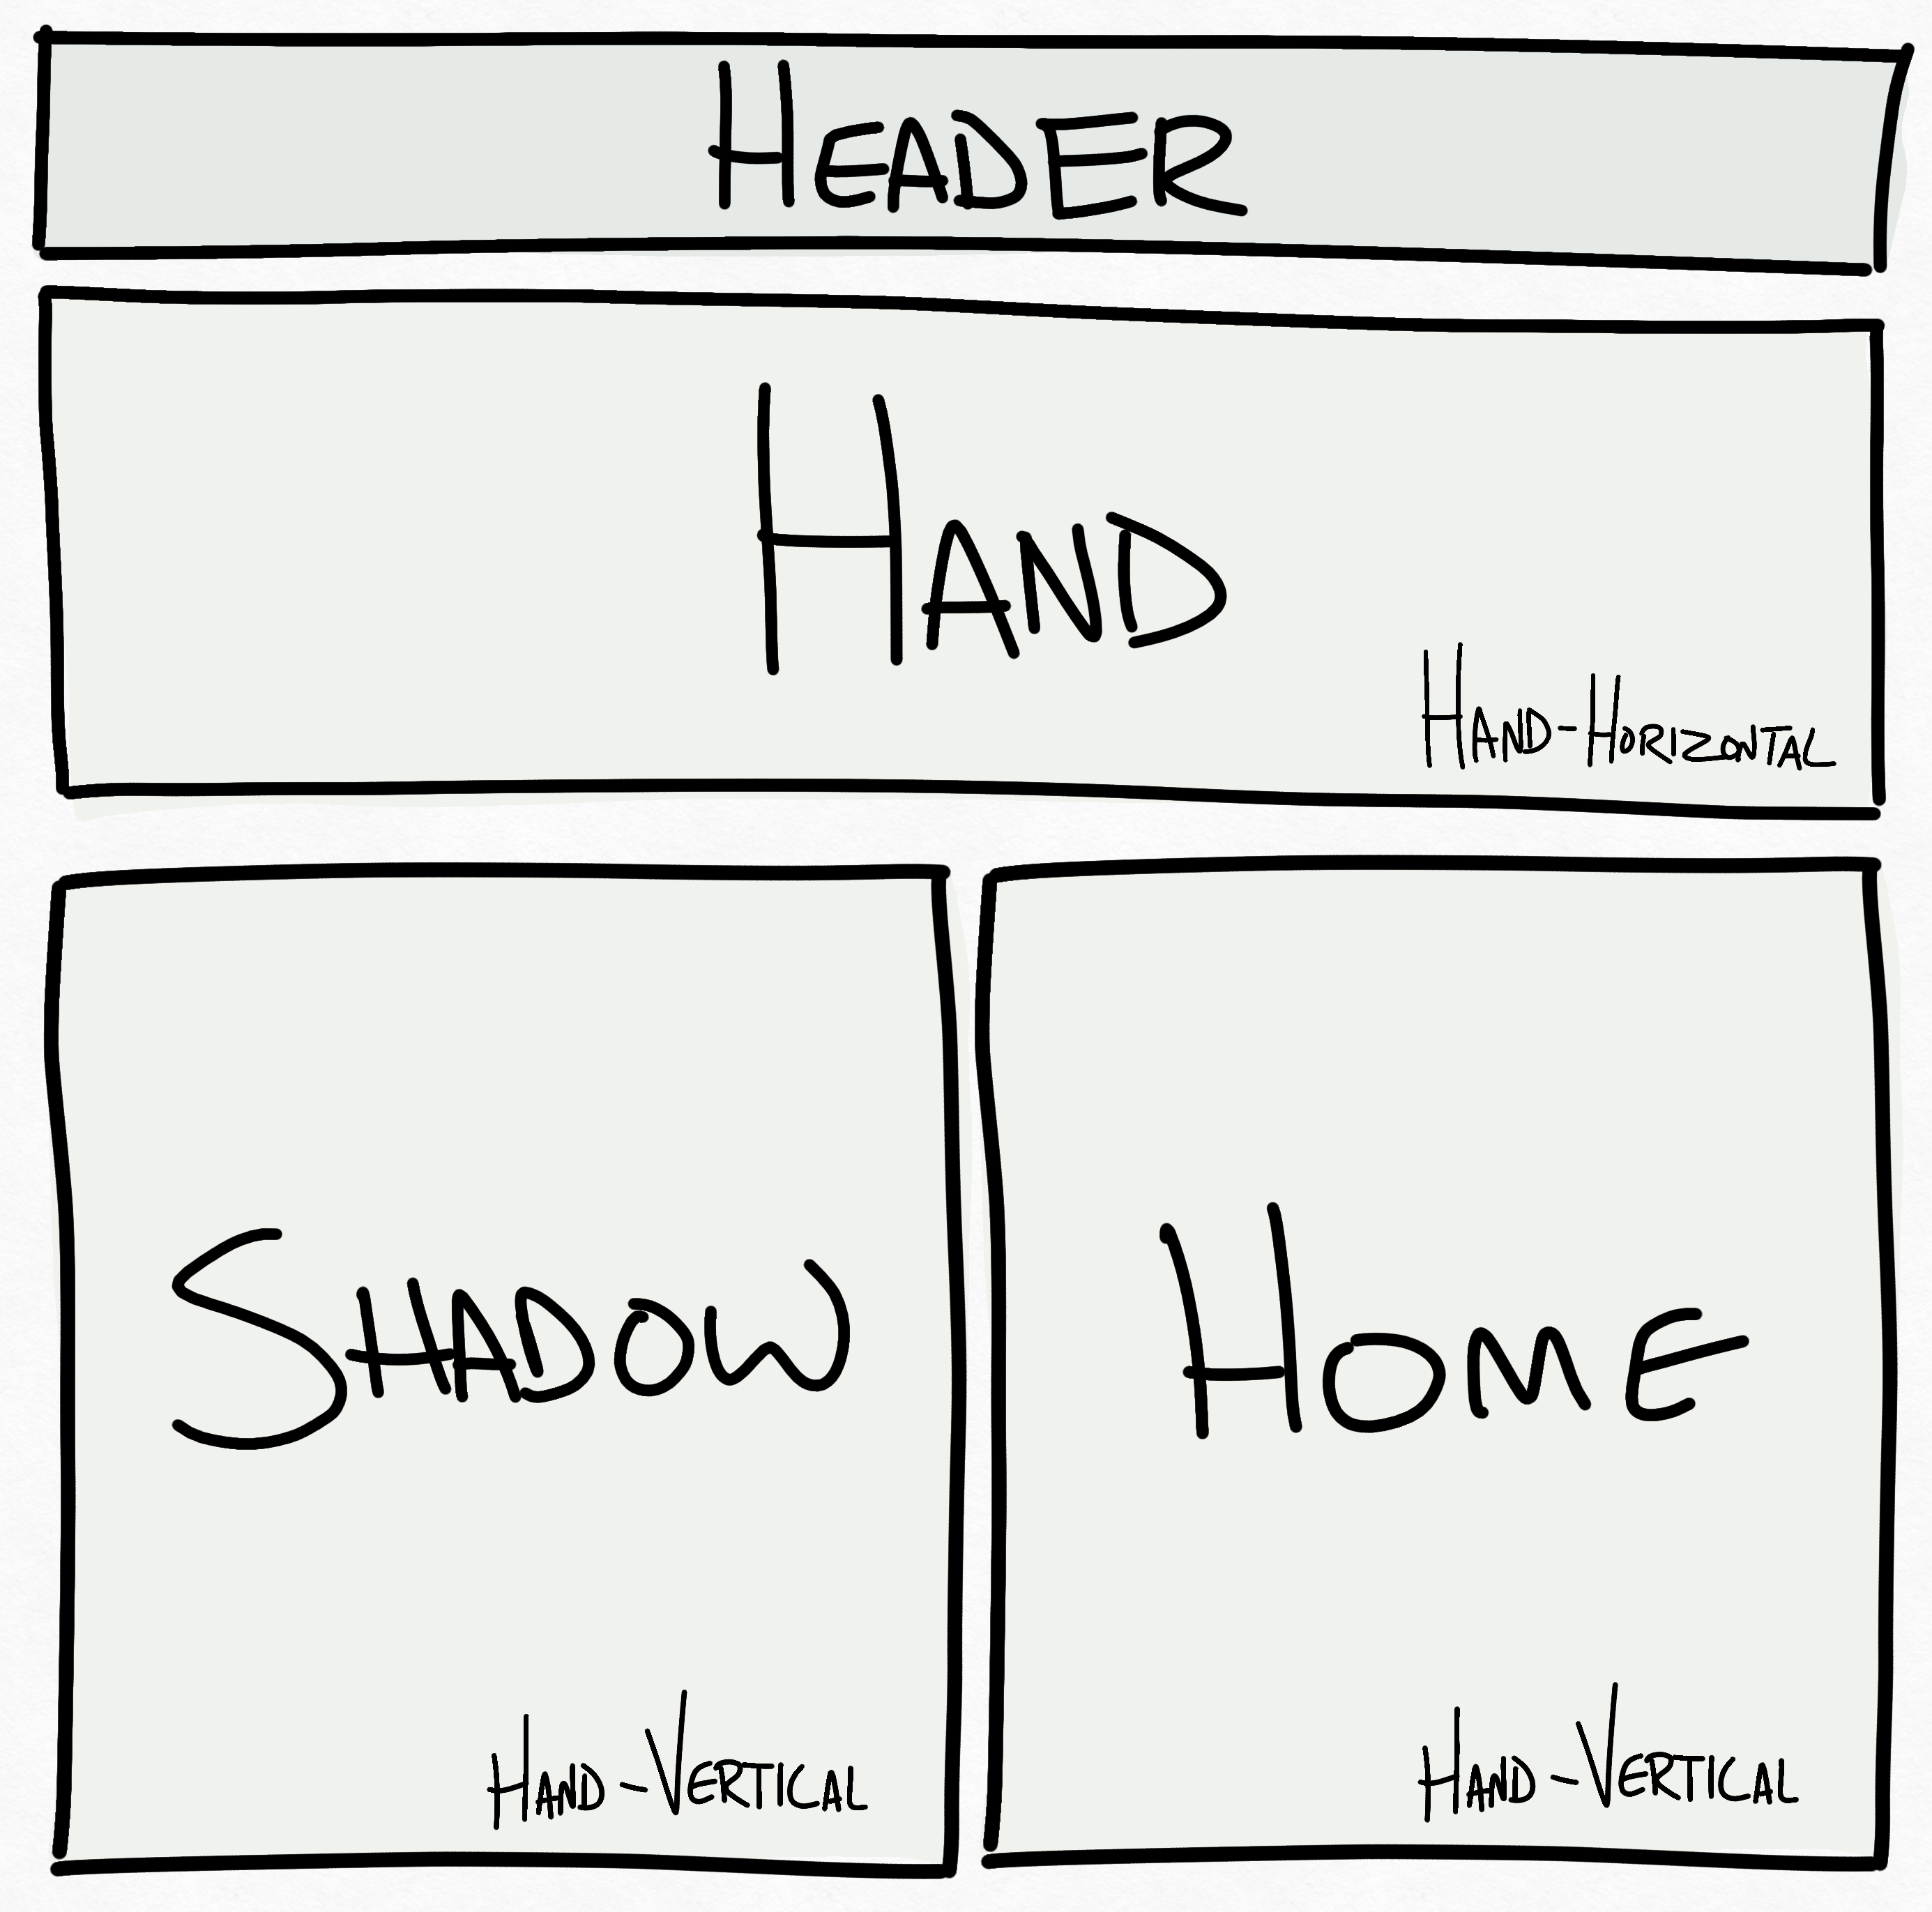 HEADER
HAND
HAND-HORIZONTAL
SHADOW
HAND-VERTICAL
HOME
HAND-VERTICAL